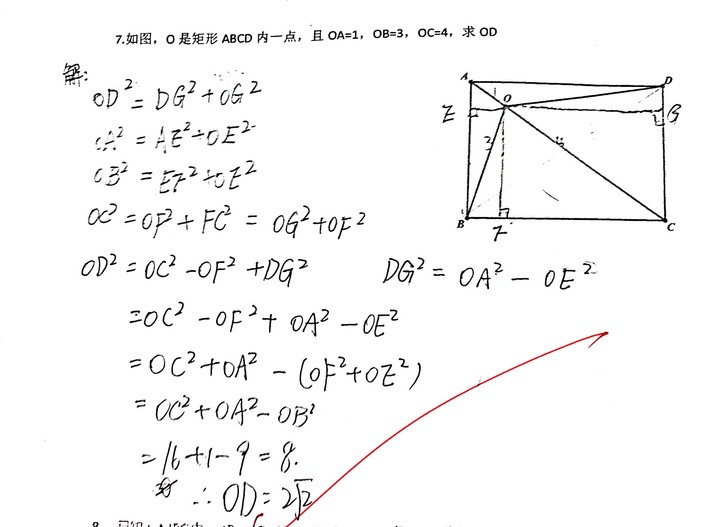 7.如图，O 是矩形 ABCD 内一点，且 OA=1，OB=3，OC=4，求 OD
解:
OD² = DG² + OG²
OA² = AE² + OE²
OB² = EF² + OE²
OC² = OF² + FC² = OG² + OF²
OD² = OC² - OF² + DG²    DG² = OA² - OE²
= OC² - OF² + OA² - OE²
= OC² + OA² - (OF² + OE²)
= OC² + OA² - OB²
= 16 + 1 - 9 = 8.
∴ OD = 2√2
A
D
O
E
G
3
4
B
F
C